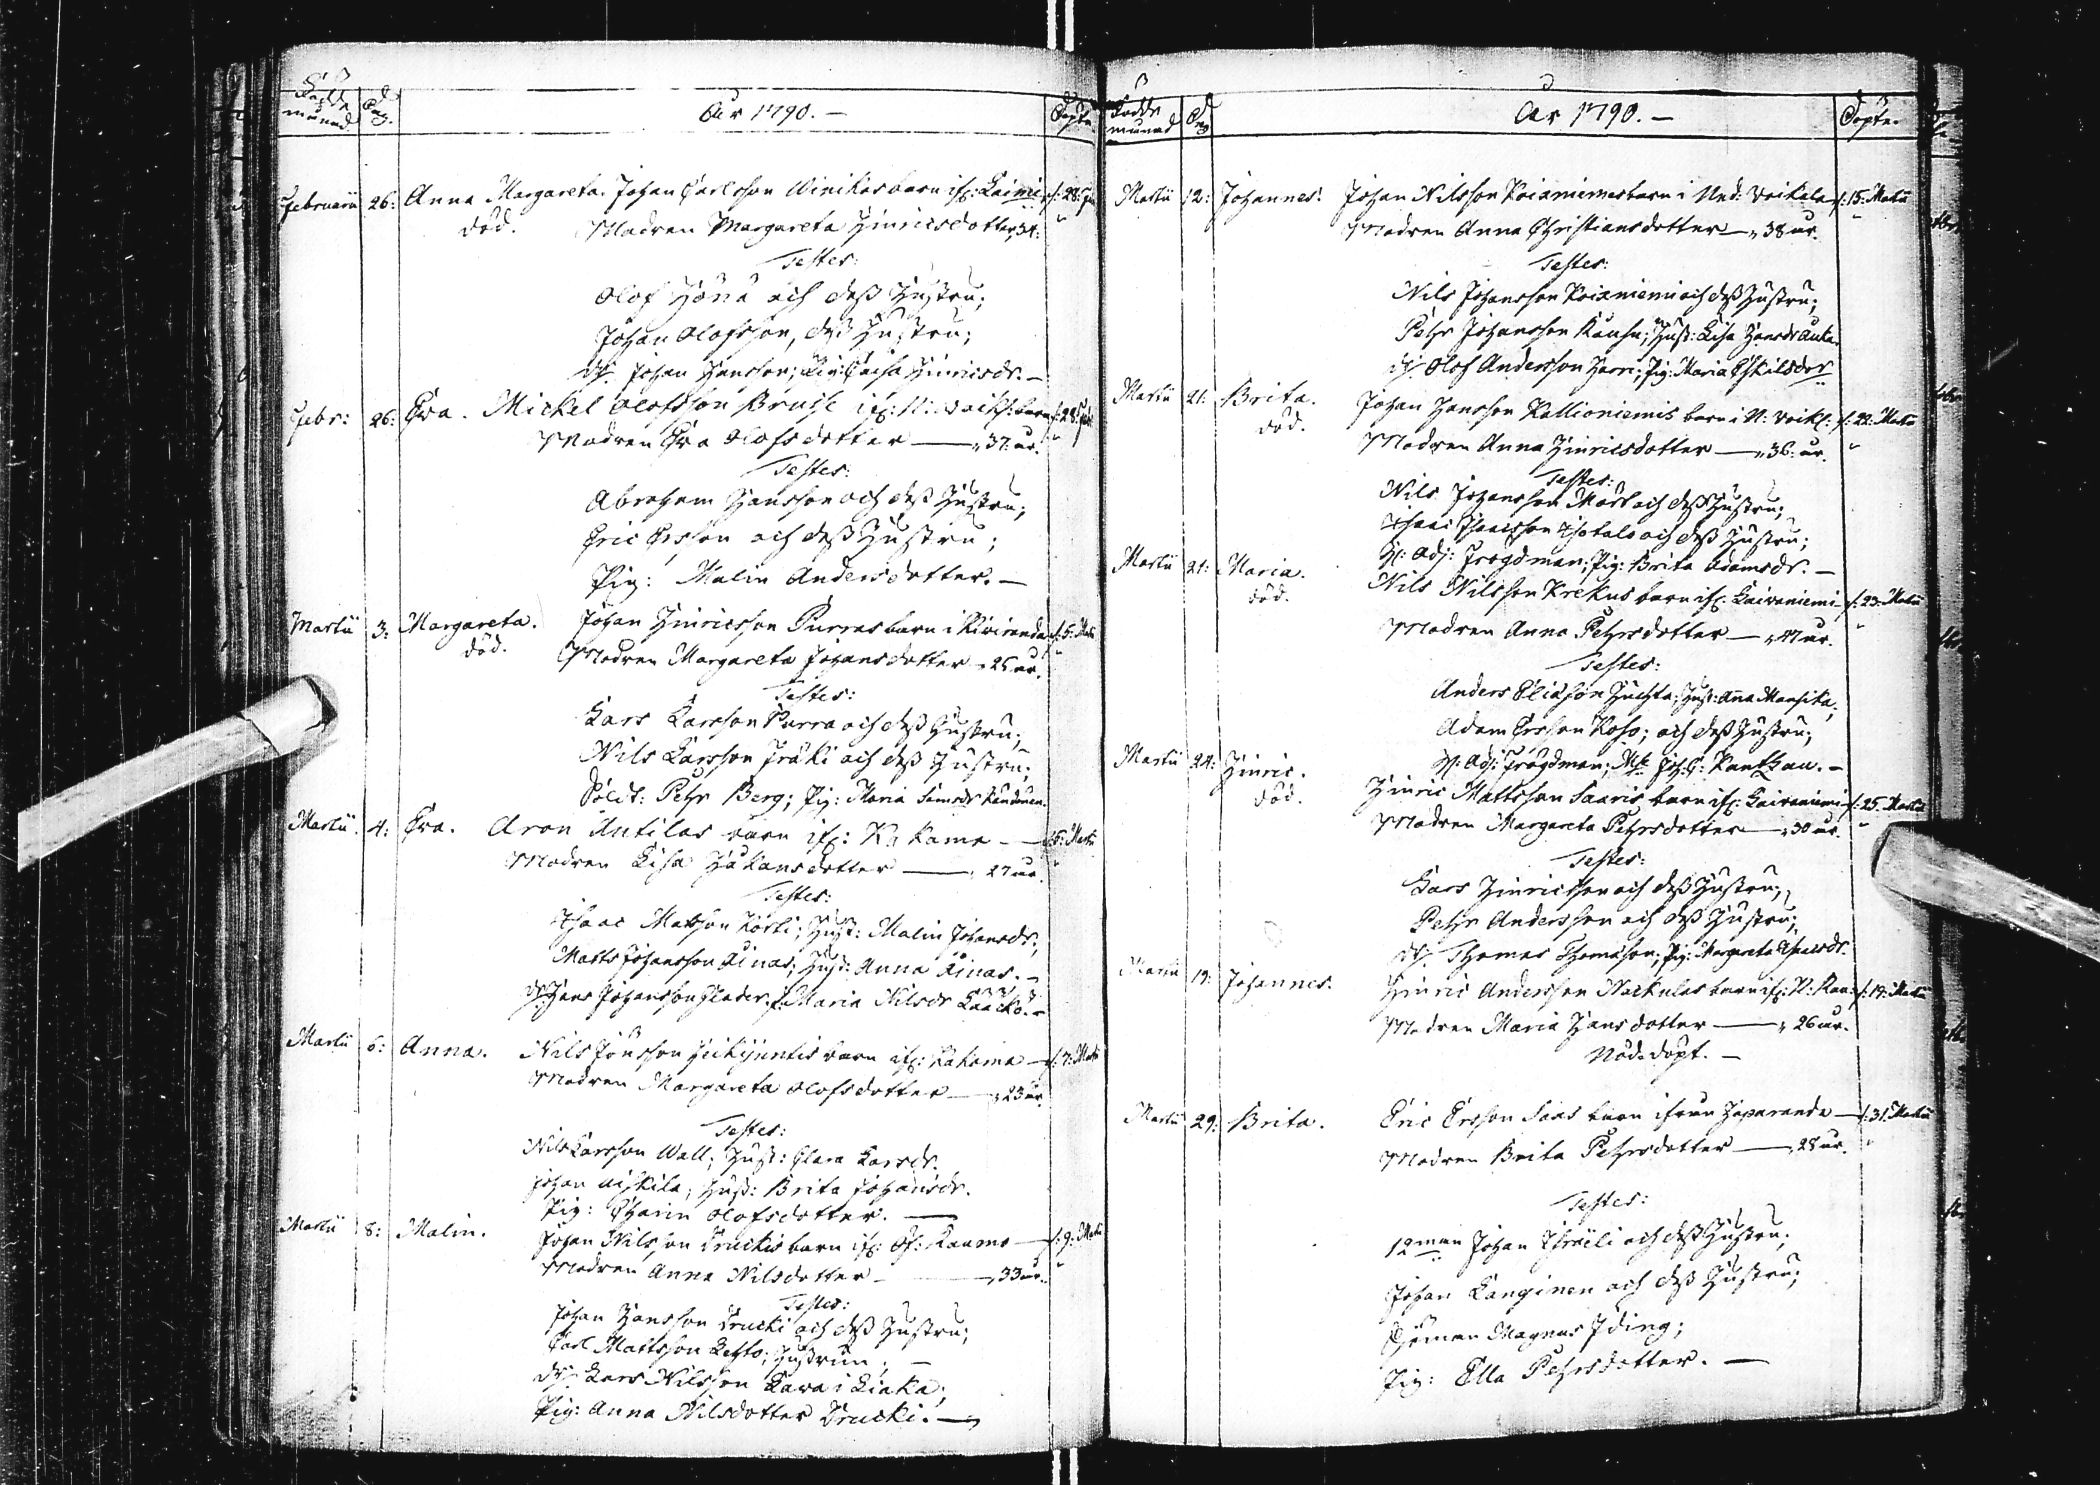 Födde månad Dag. År 1790.— Döpte
Februarii 26: Anna Margareta. Johan Carlsson Winikas barn ifr: Laivie d: 28: Fe
död. Modren Margareta Hinricsdotter, 34:
Testes:
Olof Hönä och dess Hustru;
Johan Olofsson, dess Hustru;
Dr: Johan Hansson; Pig: Caisa Hinricsdr.—
Febr: 26: Eva. Mickel Olofsson Brusse ifr: N: Voik: barn d: 28: Feb
Modren Eva Olofsdotter — „37: år.
Testes:
Abraham Hansson och dess Hustru;
Eric Ersson och dess Hustru;
Pig: Malin Andersdotter.—
Martii 3: Margareta. Johan Hinricsson Purras barn i Kiviranda d: 5: Marti
död. Modren Margareta Johansdotter „25 år.
Testes:
Lars Larsson Purra och dess Hustru;
Nils Larsson Fräki och dess Hustru;
Soldt: Pehr Berg; Pig: Maria Simsdr
Martii. 4: Eva. Aron Antilas barn ifr: Kakamo — d: 5: Marti
Modren Lisa Håkansdotter — „27 år.
Testes:
Isaac Matsson Körki; Hust: Malin Johansdr;
Matts Johansson Kinas; Hust: Anna Kinas.—
Dr: Hans Johansson; Maria Nilsdr Laacko.—
Martii 6: Anna. Nils Jönsson Heikijuntis barn ifr: Kakama — d: 7: Marti
Modren Margareta Olofsdotter — „23 år.
Testes:
Nils Larsson Wall; Hust: Clara Larsdr.
Johan Aiskila; Hust: Brita Johansdr.
Pig: Charin Olofsdotter. —
Martii 8: Malin. Johan Nilsson Druckis barn ifr: Öf: Raumo — d: 9: Marti
Modren Anna Nilsdotter — „33 år.
Testes:
Johan Hansson Drucki och dess Hustru;
Carl Mattsson Lehto; Hustrun. —
Dr: Lars Nilsson Lava i Liaka;
Pig: Anna Nilsdotter Drucki.—
Födde månad Dag År 1790.— Döpte
Martii 12: Johannes. Johan Nilsson Koianiemes barn i Ned: Voikala d: 15: Martii
Modren Anna Christiansdotter — „38 år.
Testes:
Nils Johansson Koianiemi och dess Hustru;
Pehr Johansson Kauhu; Hust: Lisa Hansdr
Dr: Olof Andersson Harri; Pig: Maria Eskilsdotr
Martii 21: Brita. Johan Hansson Kallioniemis barn i N: Voik: d: 22: Martii
död. Modren Anna Hinricsdotter — „36: år.
Testes:
Nils Johansson Mört och dess Hustru;
Isaac Isacsson Isotalo och dess Hustru;
H: Adj: Frogdman; Pig: Brita Adamsdr.—
Martii 21: Maria. Nils Nilsson Krekus barn ifr: Laivaniemi d: 23: Martii
död. Modren Anna Pehrsdotter — „47 år.
Testes:
Anders Eliasson Huchta; Hust: Anna Mansika;
Adam Ersson Koso; och dess Hustru;
H: Adj: Frogdman; Joh: G: Kantzau.—
Martii 24: Hinric. Hinric Mattsson Saaris barn ifr: Laivaniemi d: 25: Martii
död. Modren Margareta Pehrsdotter — „30 år.
Testes:
Lars Hinricsson och dess Hustru;
Pehr Andersson och dess Hustru;
Dr: Thomas Thomasson; Pig: Margareta
Martii 19: Johannes. Hinric Andersson Nackulas barn ifr: N: Rau: d: 19: Martii
Modren Maria Hansdotter — „26 år.
Nöd. döpt.—
Martii 29: Brita. Eric Ersson Saas barn ifrån Haparanda — d: 31: Martii
Modren Brita Pehrsdotter — „28 år.
Testes:
12man Johan Israeli och dess Hustru;
Johan Kanginen och dess Hustru;
Magnus Iding;
Pig: Ella Pehrsdotter.—